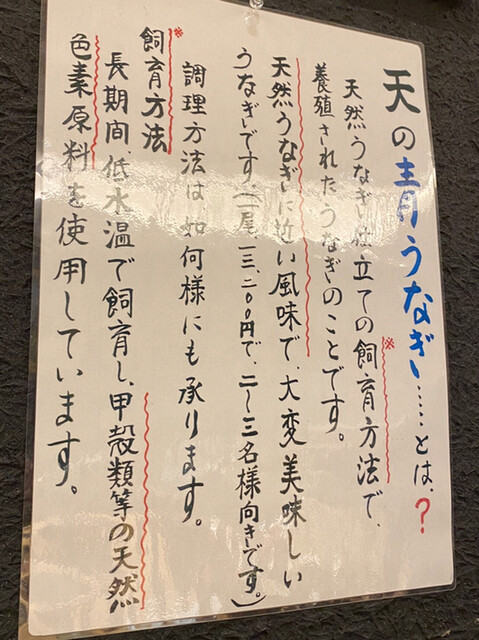 天の青うなぎ……とは、?
天然うなぎ仕立ての飼育方法で、
※
養殖されたうなぎのことです。
天然うなぎに近い風味で、大変美味しい
うなぎです。(一尾、一三、二〇〇円で、二~三名様向きです。)
調理方法は如何様にも承ります。
※
飼育方法
長期間、低水温で飼育し、甲殻類等の天然
色素原料を使用しています。